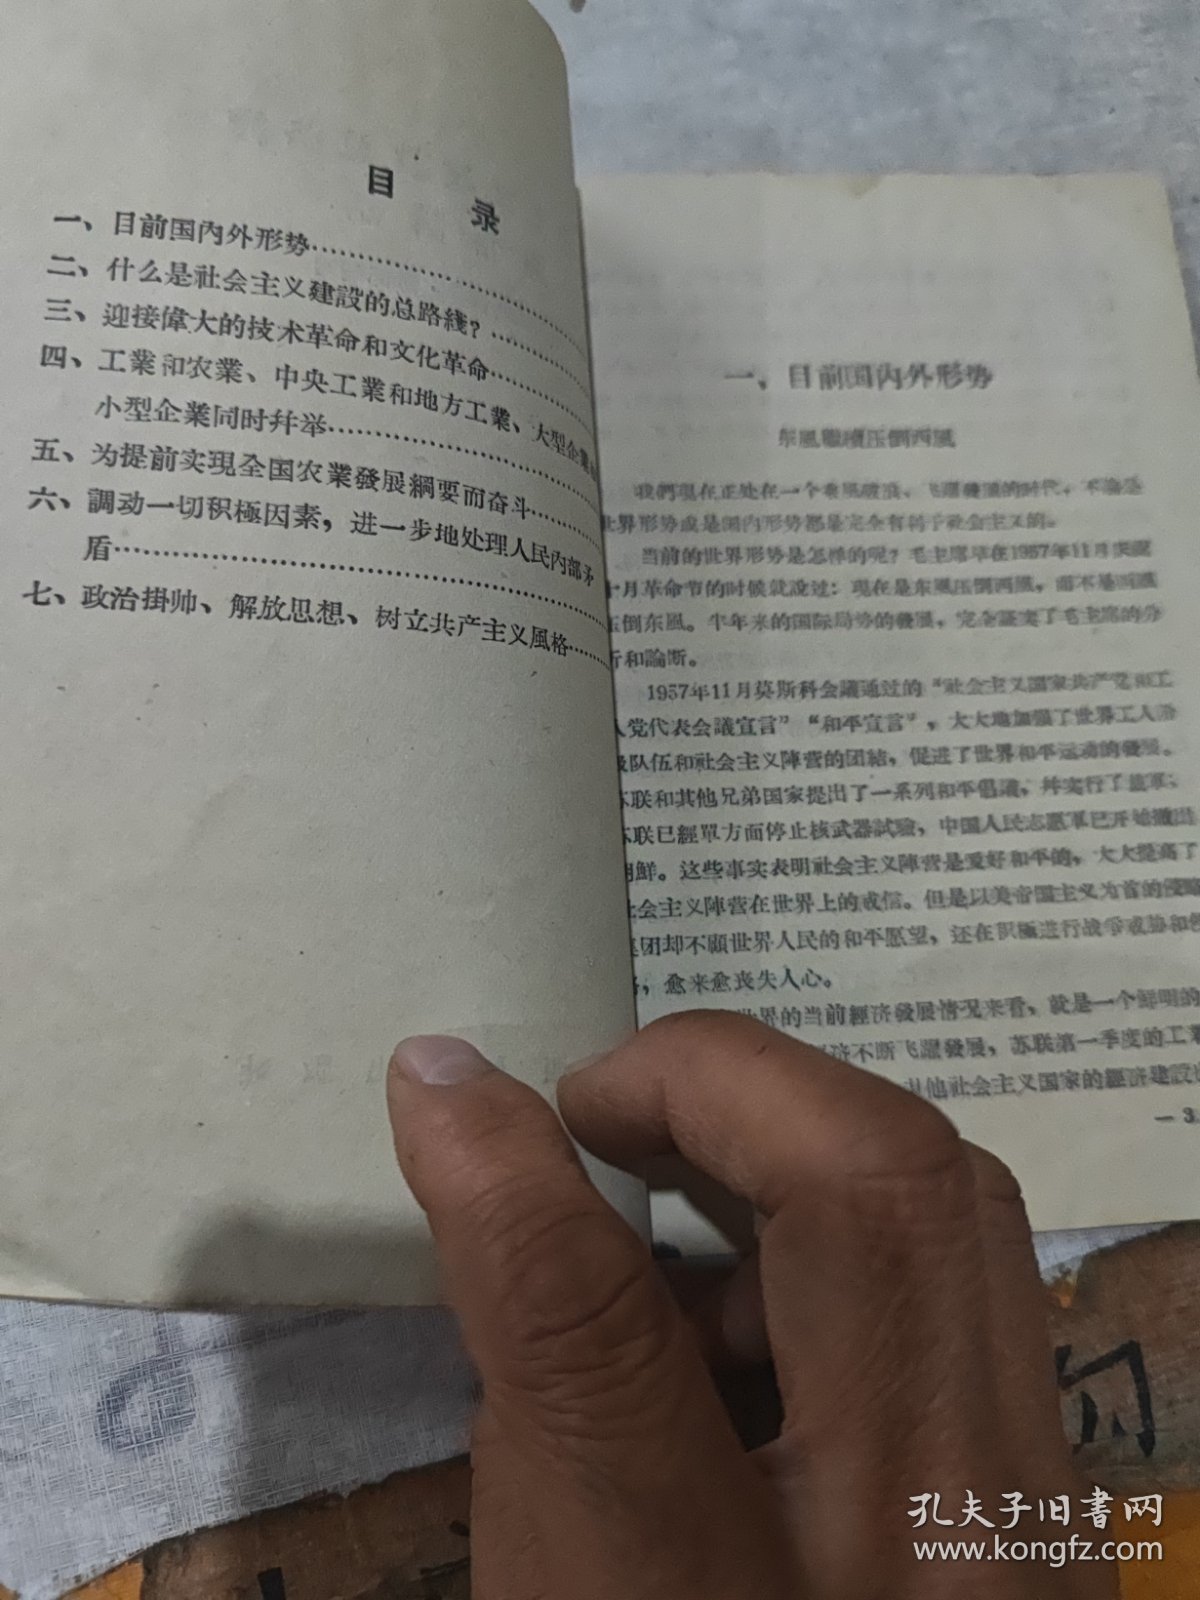 目 录
一、目前国內外形势
二、什么是社会主义建設的总路綫?
三、迎接偉大的技术革命和文化革命
四、工業和农業、中央工業和地方工業、大型企業
小型企業同时幷举
五、为提前实現全国农業發展綱要而奋斗
六、調动一切积極因素，进一步地处理人民內部矛
盾
七、政治掛帅、解放思想、树立共产主义風格
一、目前国內外形势
东風 压倒西風
我們現在正处在一个 飞躍發展的时代，不論是
世界形势或是国內形势都是完全有利于社会主义的。
当前的世界形势是怎样的呢？毛主席早在1957年11月
十月革命节的时候就說过：現在是东風压倒西風，而不是西風
压倒东風。半年来的国际局势的發展，完全証实了毛主席的分
析和論断。
1957年11月莫斯科会議通过的“社会主义国家共产党和工
人党代表会議宣言”“和平宣言”，大大地加强了世界工人阶
級队伍和社会主义陣营的团結，促进了世界和平运动的發展。
苏联和其他兄弟国家提出了一系列和平倡議，幷实行了裁軍；
苏联已經單方面停止核武器試驗，中国人民志愿軍已开始撤出
朝鮮。这些事实表明社会主义陣营是爱好和平的，大大提高了
社会主义陣营在世界上的威信。但是以美帝国主义为首的侵略
集团却不顧世界人民的和平愿望，还在积極进行战爭威胁和
愈来愈丧失人心。
世界的当前經济發展情况来看，就是一个鮮明的
济不断飞躍發展，苏联第一季度的工業
其他社会主义国家的經济建設
— 3
孔夫子旧书网
www.kongfz.com